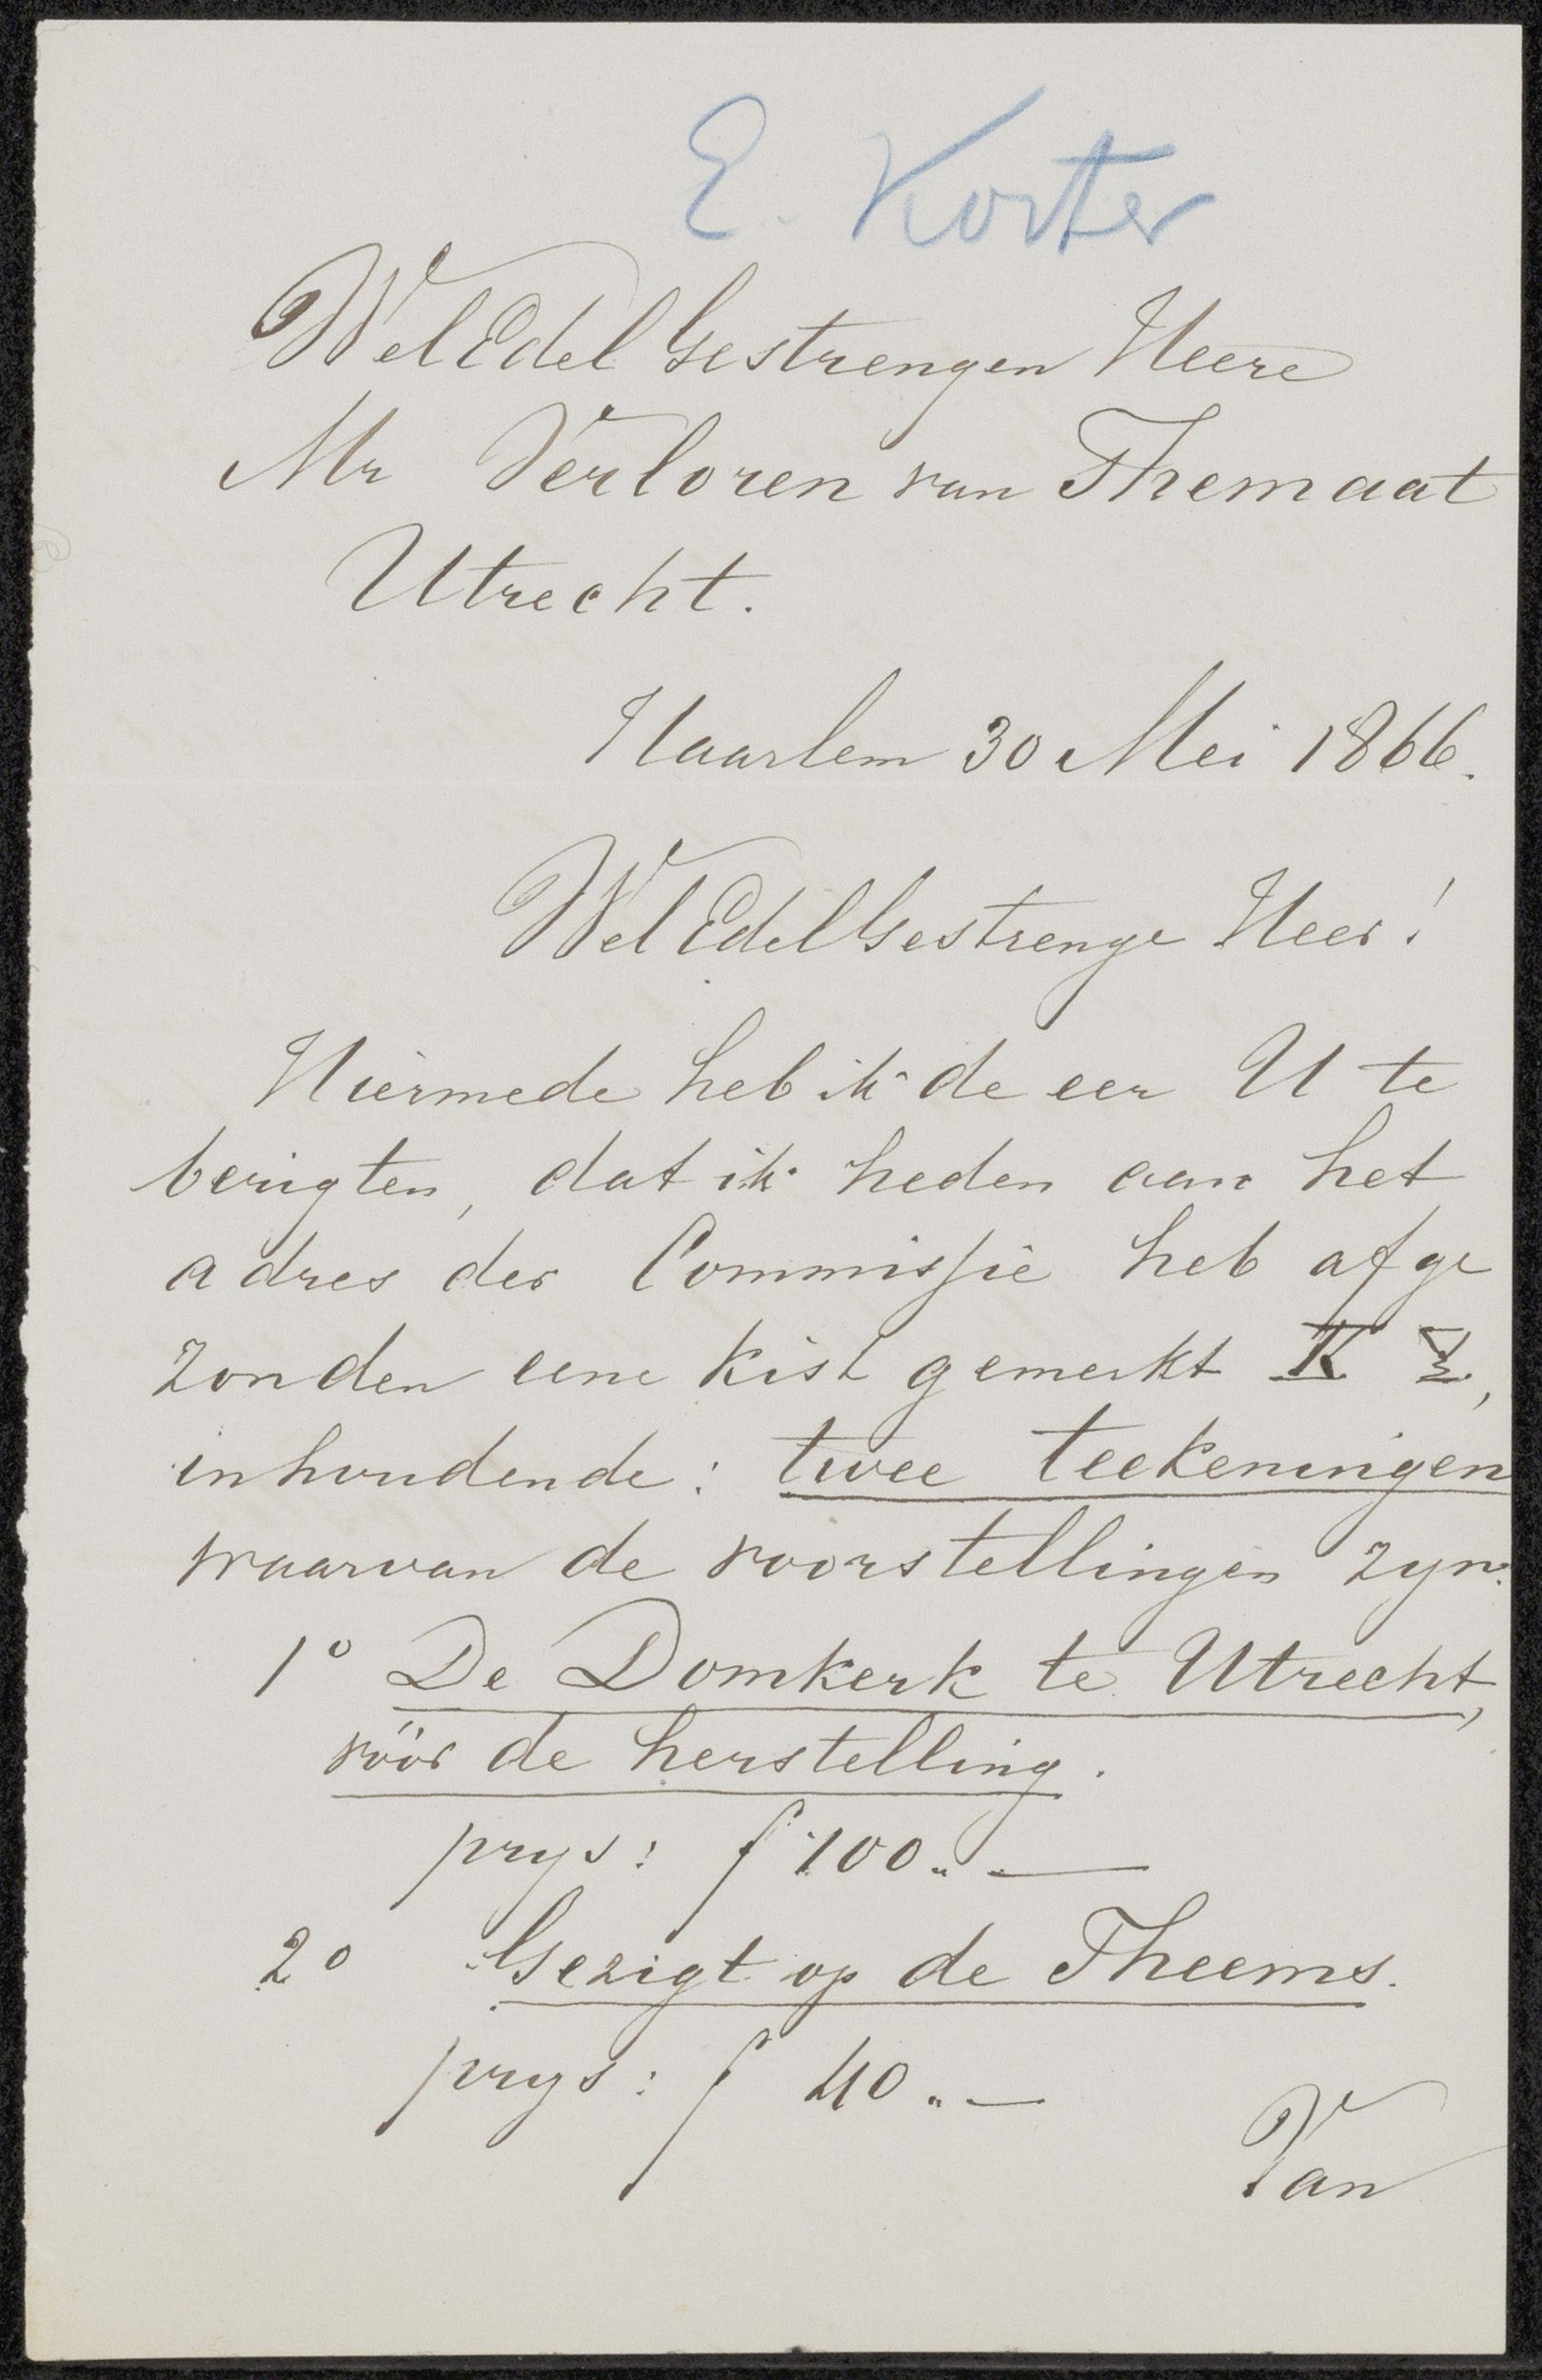 E. Korter
WelEdel Gestrengen Heere
Mr Verloren van Themaat
Utrecht.
Haarlem 30 Mei 1866.
WelEdelGestrenge Heer!
Hiermede heb ik de eer U te
berigten, dat ik heden aan het
adres der Commissie heb afge
zonden eene kist gemerkt K
inhoudende: twee teekeningen
waarvan de voorstellingen zyn:
1o De Domkerk te Utrecht,
vóór de herstelling.
prys: f 100.. —
2o Gezigt op de Theems.
prys: f 40.. —
Van